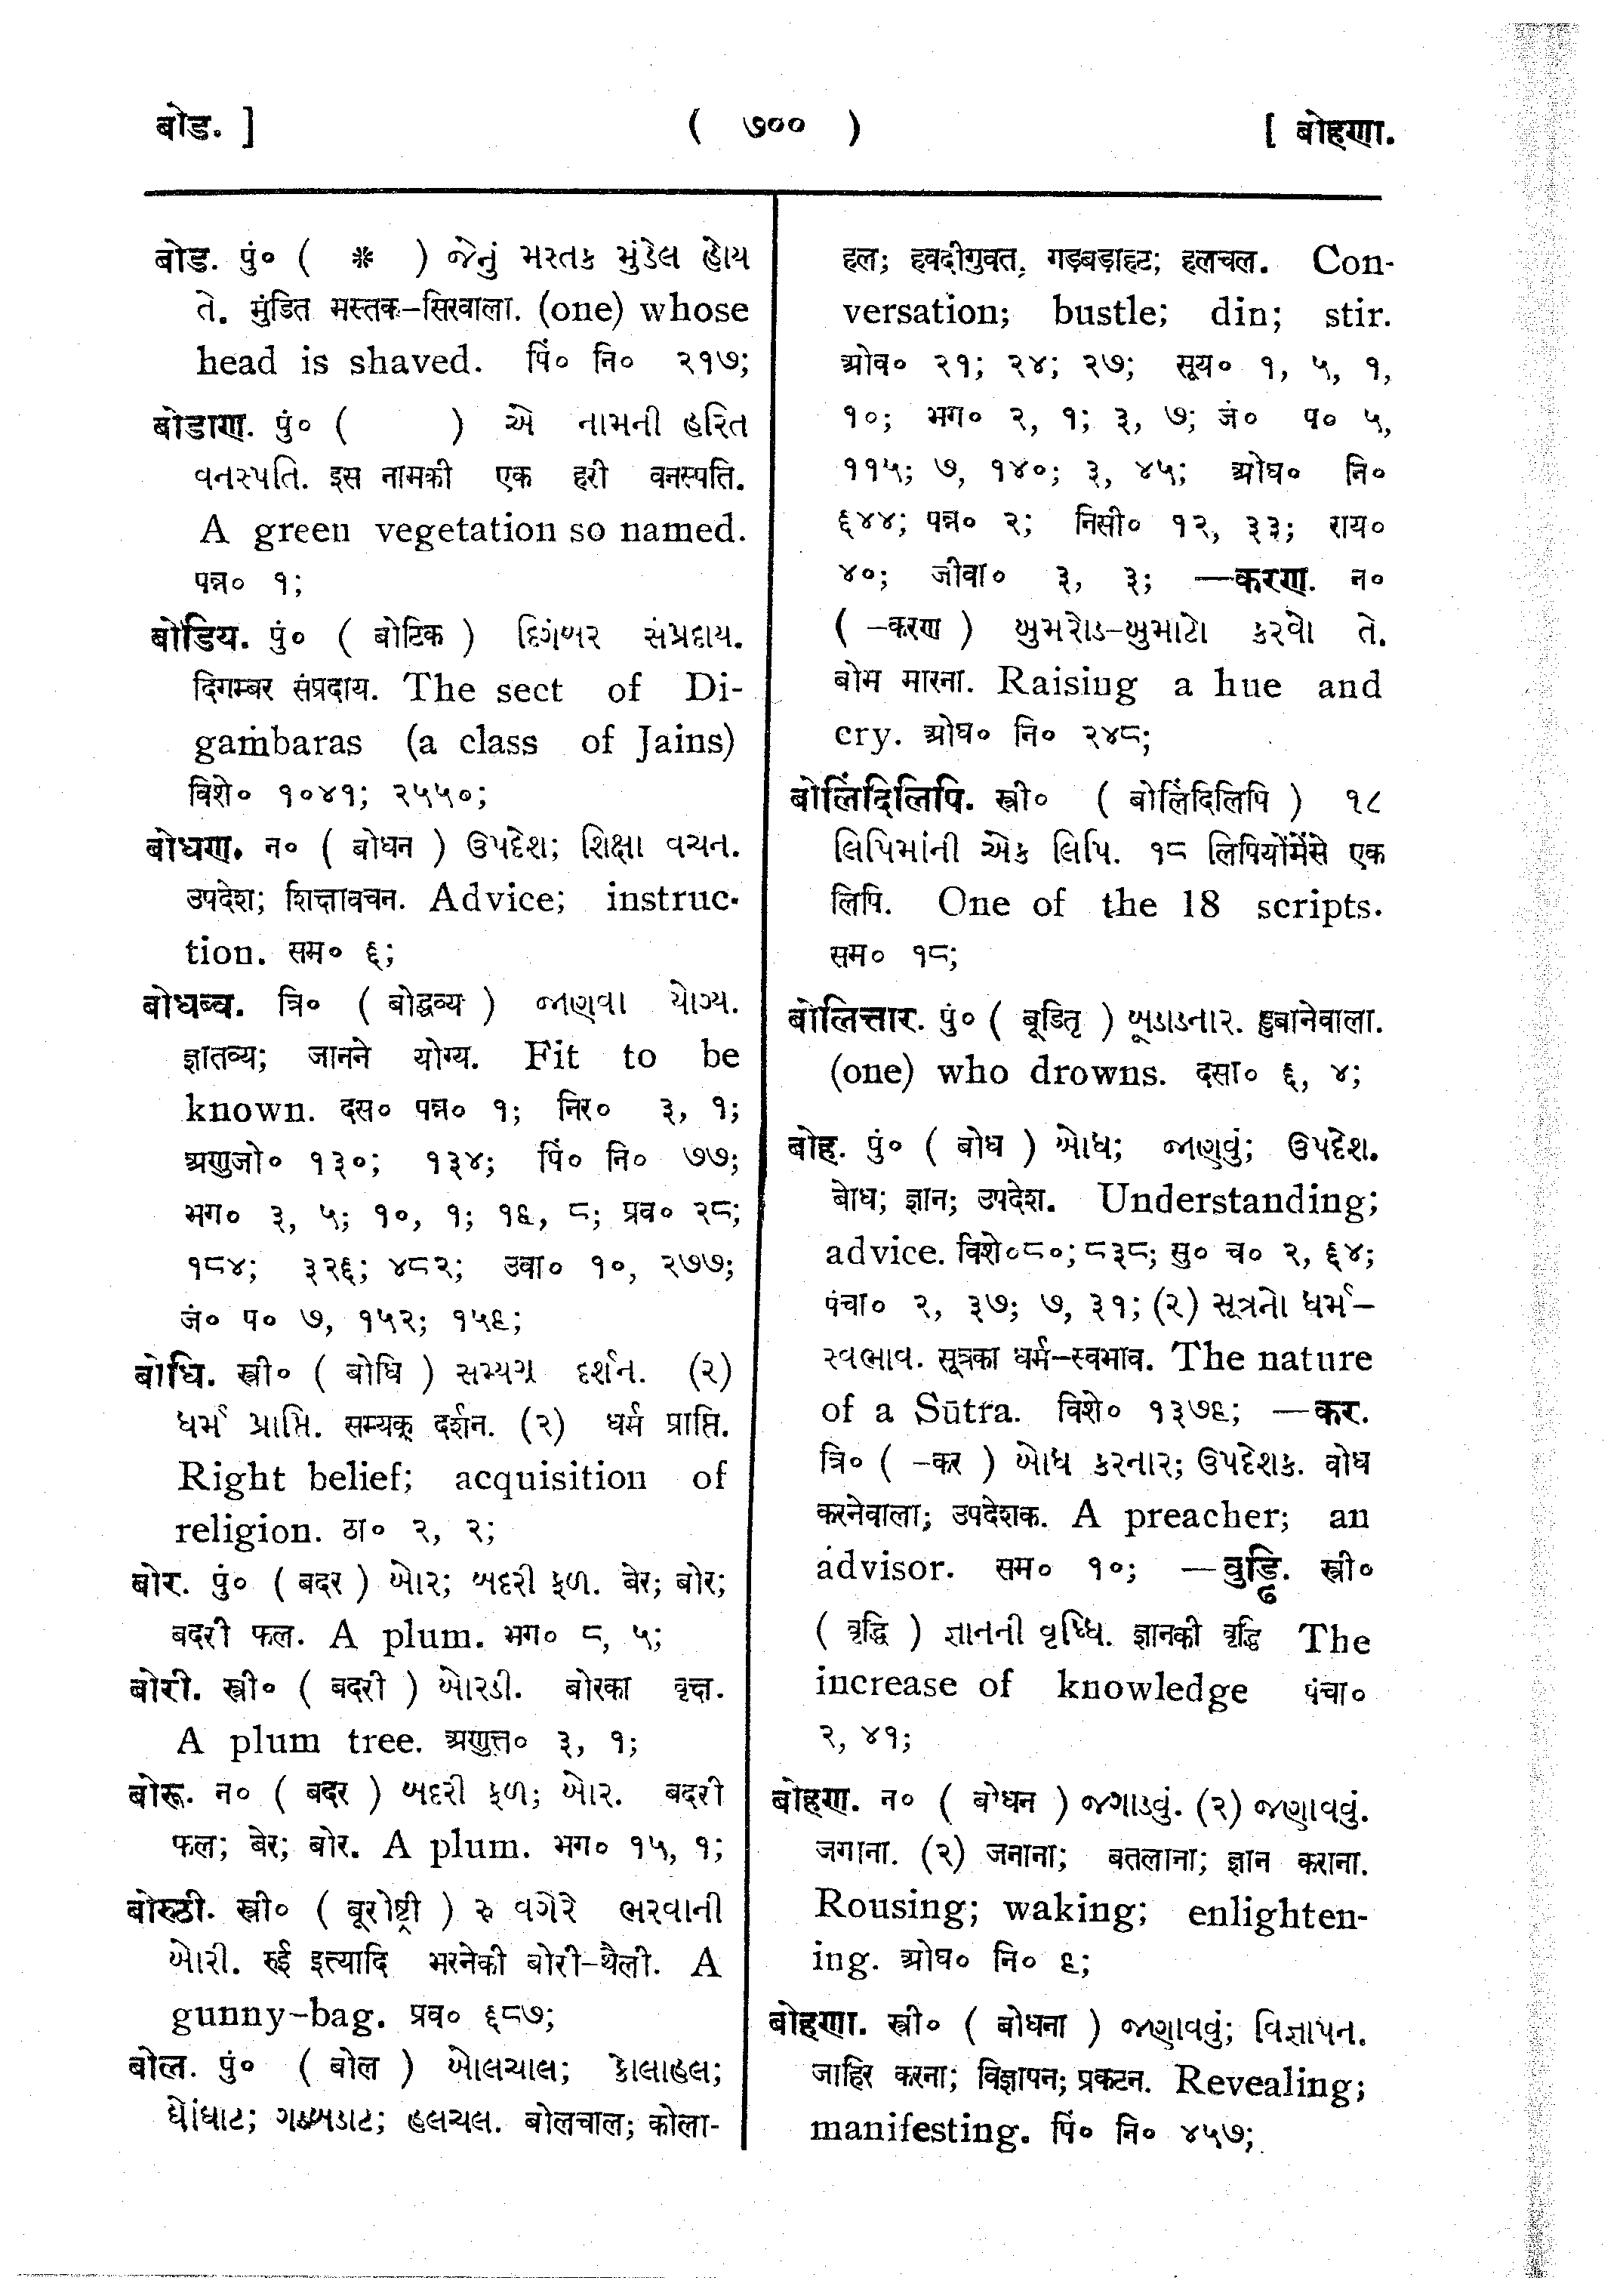 बोड. ] ( ७०० ) [ बोहणा.
बोड. पुं० ( * ) જેનું મસ્તક મુંડેલ હોય
તે. मुंडित मस्तक-सिरवाला. (one) whose
head is shaved. पिं० नि० २१७;
बोडाण. पुं० ( ) એ નામની હરિત
વનસ્પતિ. इस नामकी एक हरी वनस्पति.
A green vegetation so named.
पन्न० १;
बोडिय. पुं० ( बोटिक ) દિગંબર સંપ્રદાય.
दिगम्बर संप्रदाय. The sect of Di-
gaṁbaras (a class of Jains)
विशे० १०४१; २५५०;
बोधण. न० ( बोधन ) ઉપદેશ; શિક્ષા વચન.
उपदेश; शिक्षावचन. Advice; instruc-
tion. सम० ६;
बोधव्व. त्रि० ( बोद्धव्य ) જાણવા યોગ્ય.
ज्ञातव्य; जानने योग्य. Fit to be
known. दस० पन्न० १; निर० ३, १;
अणुजो० १३०; १३४; पिं० नि० ७७;
भग० ३, ५; १०, १; १६, ८; प्रव० २८;
१८४; ३२६; ४८२; उवा० १०, २७७;
जं० प० ७, १५२; १५६;
बोधि. स्त्री० ( बोधि ) સમ્યગ્ર દર્શન. (૨)
ધર્મ પ્રાપ્તિ. सम्यक् दर्शन. (२) धर्म प्राप्ति.
Right belief; acquisition of
religion. ठा० २, २;
बोर. पुं० ( बदर ) બોર; બદરી ફળ. बेर; बोर;
बदरी फल. A plum. भग० ८, ५;
बोरी. स्त्री० ( बदरी ) બોરડી. बोरका वृक्ष.
A plum tree. अणुत्त० ३, १;
बोरू. न० ( बदर ) બદરી ફળ; બોર. बदरी
फल; बेर; बोर. A plum. भग० १५, १;
बोरुठी. स्त्री० ( बूरोष्ट्री ) રુ વગેરે ભરવાની
બોરી. रुई इत्यादि भरनेकी बोरी-थैली. A
gunny-bag. प्रव० ६८७;
बोल. पुं० ( बोल ) બોલચાલ; કોલાહલ;
ઘોંઘાટ; ગડબડાટ; હલચલ. बोलचाल; कोला-
हल; हवदीगुवत, गड़बड़ाहट; हलचल. Con-
versation; bustle; din; stir.
ओव० २१; २४; २७; सूय० १, ५, १,
१०; भग० २, १; ३, ७; जं० प० ५,
११५; ७, १४०; ३, ४५; ओघ० नि०
६४४; पन्न० २; निसी० १२, ३३; राय०
४०; जीवा० ३, ३; —करण. न०
( -करण ) બુમરોડ-બુમાટો કરવો તે.
बोम मारना. Raising a hue and
cry. ओघ० नि० २४८;
बोलिंदिलिपि. स्त्री० ( बोलिंदिलिपि ) ૧૮
લિપિમાંની એક લિપિ. १८ लिपियोंमेंसे एक
लिपि. One of the 18 scripts.
सम० १८;
बोलित्तार. पुं० ( बूडितृ ) બૂડાડનાર. डुबानेवाला.
(one) who drowns. दसा० ६, ४;
बोह. पुं० ( बोध ) બોધ; જાણવું; ઉપદેશ.
बोध; ज्ञान; उपदेश. Understanding;
advice. विशे०८०; ८३८; सु० च० २, ६४;
पंचा० २, ३७; ७, ३१; (२) સૂત્રનો ધર્મ-
સ્વભાવ. सूत्रका धर्म-स्वभाव. The nature
of a Sūtra. विशे० १३७६; —कर.
त्रि० ( -कर ) બોધ કરનાર; ઉપદેશક. बोध
करनेवाला; उपदेशक. A preacher; an
advisor. सम० १०; —वुड्ढि. स्त्री०
( वृद्धि ) જ્ઞાનની વૃધ્ધિ. ज्ञानकी वृद्धि The
increase of knowledge पंचा०
२, ४१;
बोहण. न० ( बोधन ) જગાડવું. (૨) જણાવવું.
जगाना. (२) जनाना; बतलाना; ज्ञान कराना.
Rousing; waking; enlighten-
ing. ओघ० नि० ६;
बोहणा. स्त्री० ( बोधना ) જણાવવું; વિજ્ઞાપન.
जाहिर करना; विज्ञापन; प्रकटन. Revealing;
manifesting. पिं० नि० ४५७;